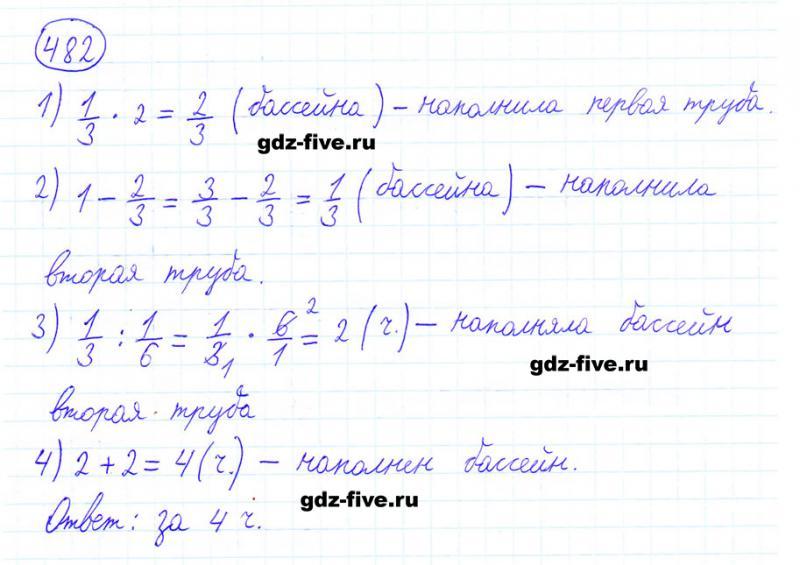 482
1) 1/3 · 2 = 2/3 (бассейна) – наполнила первая труба.
gdz-five.ru
2) 1 – 2/3 = 3/3 – 2/3 = 1/3 (бассейна) – наполнила
вторая труба.
3) 1/3 : 1/6 = 1/3 1 · 6/1 2 = 2 (ч.) – наполняла бассейн
gdz-five.ru
вторая труба
4) 2 + 2 = 4 (ч.) – наполнен бассейн.
gdz-five.ru
Ответ: за 4 ч.